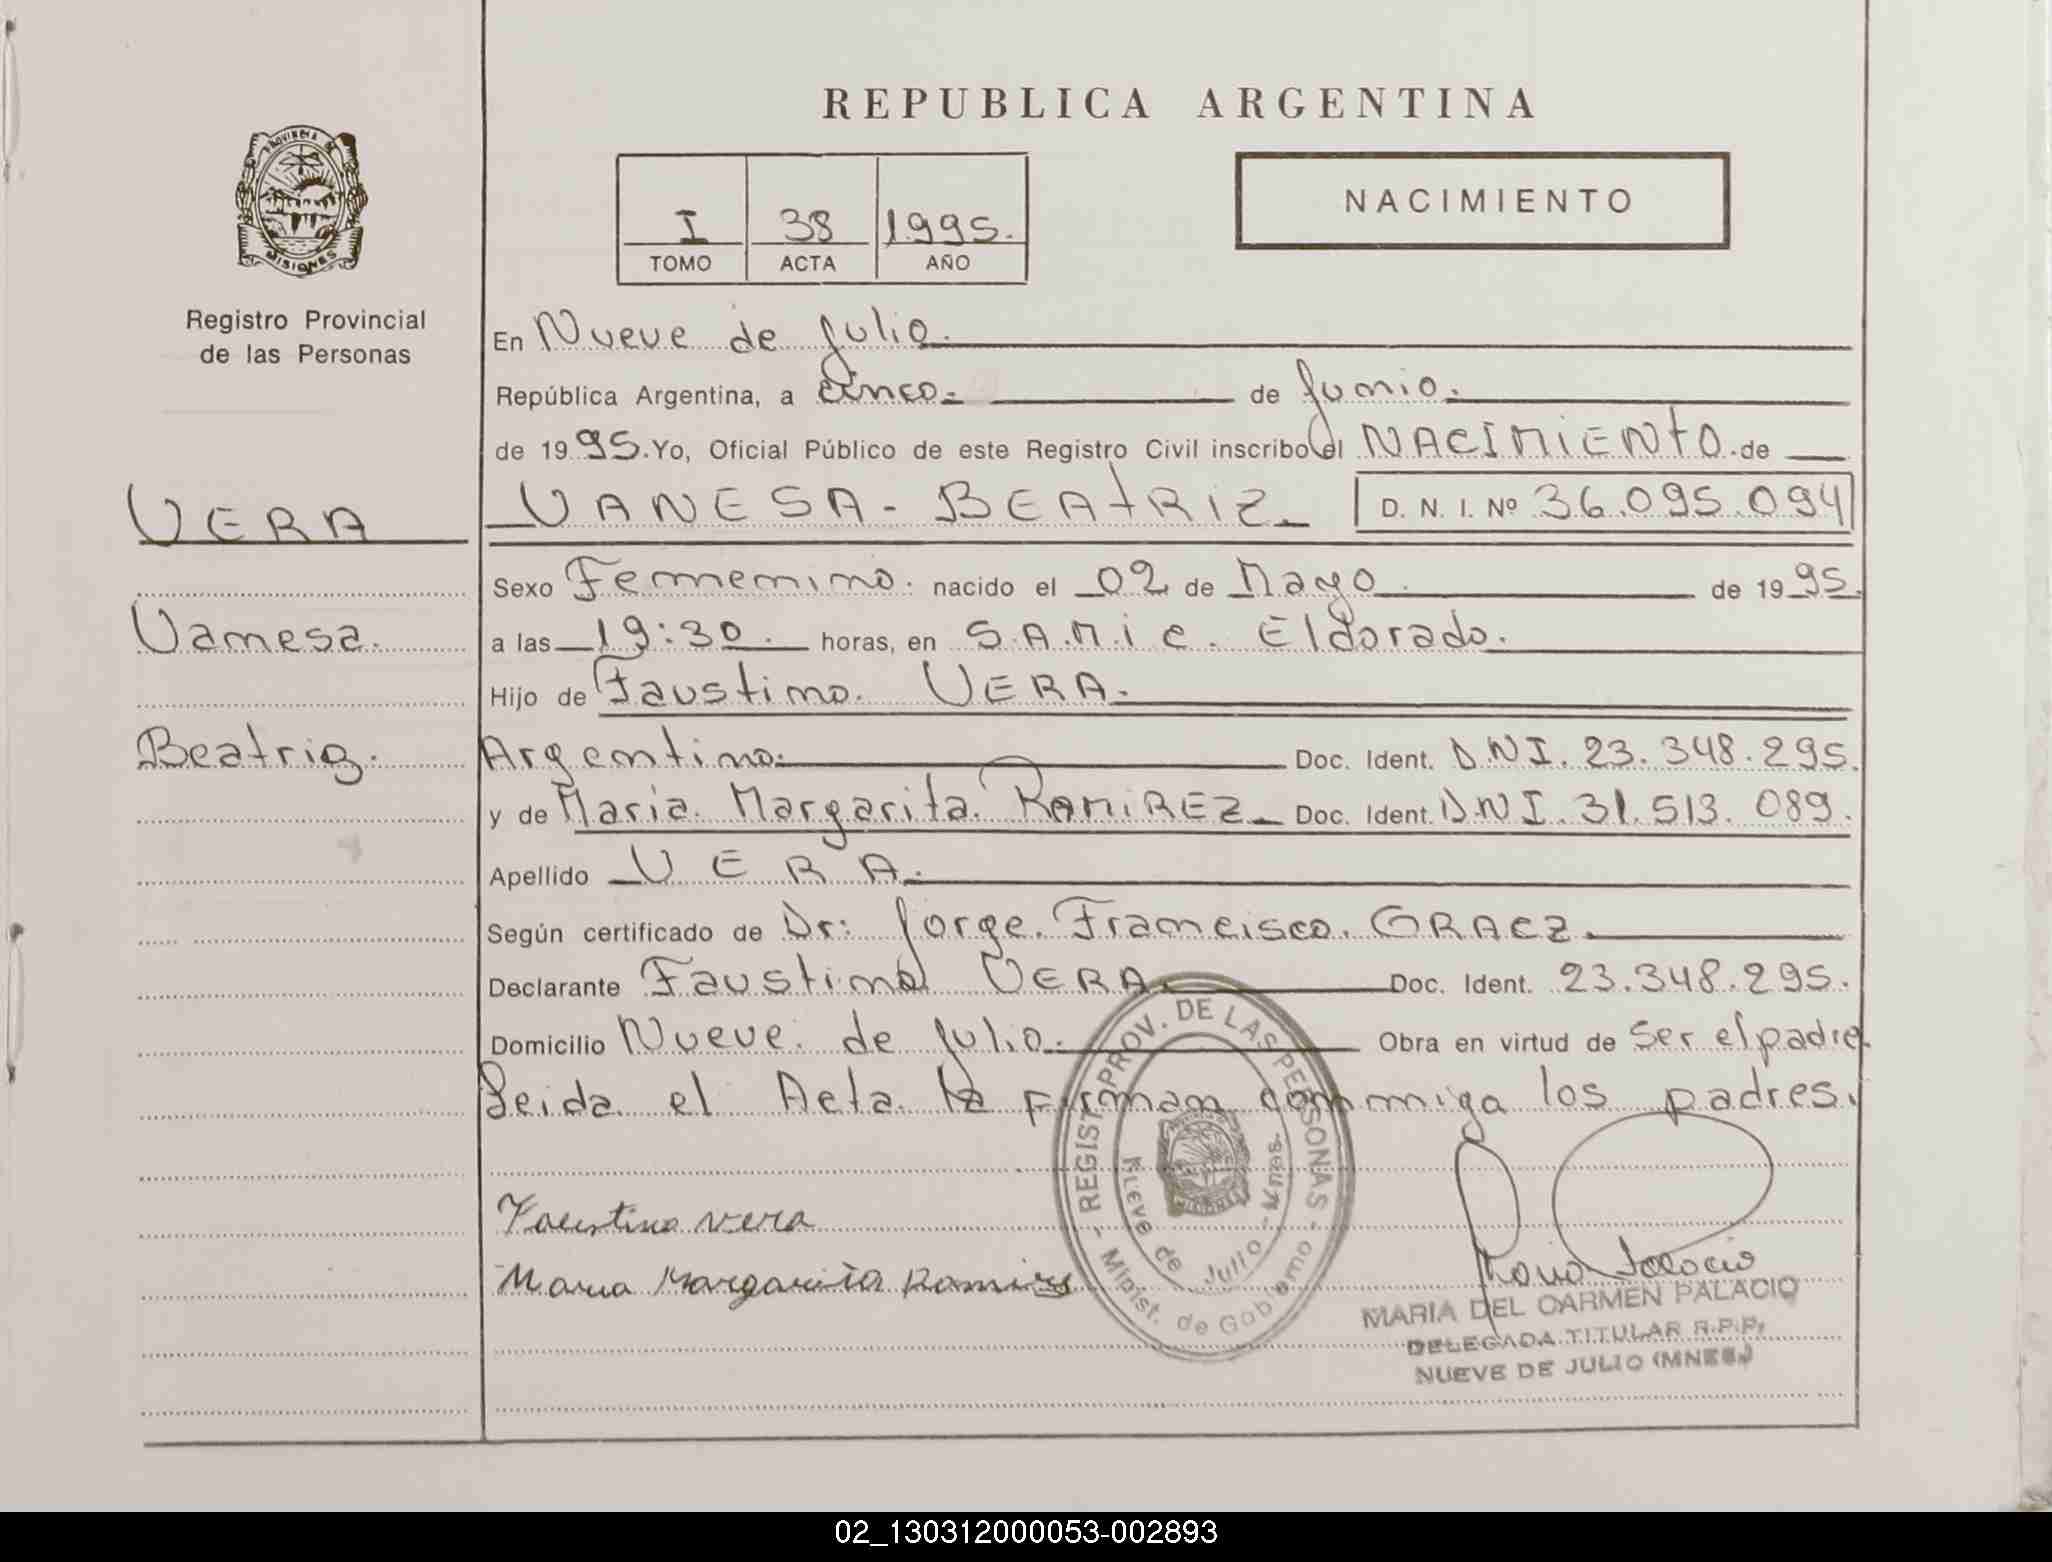 REPUBLICA ARGENTINA
PROVINCIA DE
MISIONES
Registro Provincial
de las Personas
I 38 1995.
TOMO ACTA AÑO
NACIMIENTO
En Nueve de Julio.
República Argentina, a cinco. de Junio.
de 1995. Yo, Oficial Público de este Registro Civil inscribo el NACIMIENTO de
VERA
VANESA - BEATRIZ. D. N. I. Nº 36.095.094
Sexo Femenino. nacido el 02 de Mayo de 1995.
Vanesa.
a las 19:30. horas, en S.A.M.i c. Eldorado.
Hijo de Faustino. VERA.
Beatriz.
Argentino. Doc. Ident. D.N.I. 23.348.295.
y de Maria. Margarita. RAMIREZ Doc. Ident. D.N.I. 31.513.089.
Apellido VERA.
Según certificado de Dr: Jorge. Francisco. GRACZ.
Declarante Faustino VERA. Doc. Ident. 23.348.295.
Domicilio Nueve. de Julio. Obra en virtud de ser el padre
Leida el Acta la firman conmigo los padres.
REGIST. PROV. DE LAS PERSONAS
Nueve de Julio - Mnes.
Minist. de Gobierno
Faustino vera
Maria Margarita Ramirez
Maria Palacio
MARIA DEL CARMEN PALACIO
DELEGADA TITULAR R.P.P.
NUEVE DE JULIO (MNES.)
02_130312000053-002893